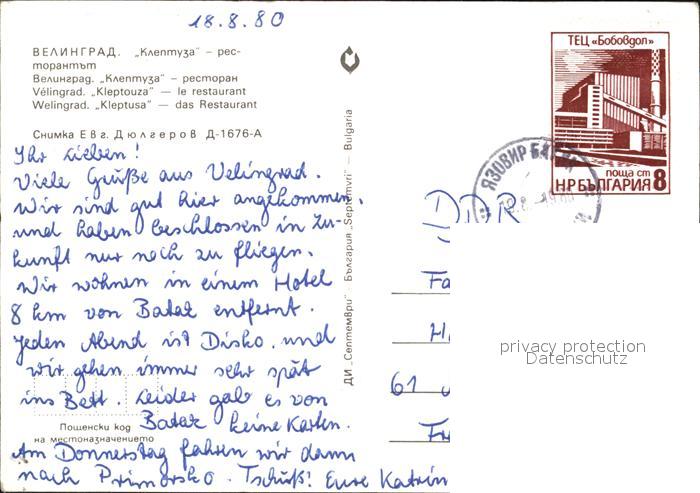 18.8.80
ВЕЛИНГРАД. „Клептуза" – рес-
торантът
Велинград. „Клептуза" – ресторан
Vélingrad. „Kleptouza" — le restaurant
Welingrad. „Kleptusa" — das Restaurant
Снимка Евг. Дюлгеров Д-1676-А
Ihr Lieben!
Viele Grüße aus Velingrad.
Wir sind gut hier angekommen.
und haben beschlossen in Zu-
kunft nur noch zu fliegen.
Wir wohnen in einem Hotel
8 km von Batak entfernt.
Jeden Abend ist Disko. und
wir gehen immer sehr spät
ins Bett. Leider gab es von
Batak keine Karten.
Am Donnerstag fahren wir dann
nach Primorsko. Tschüß! Eure Katrin
Пощенски код
на местоназначението
ДИ „Септември" – България „Septemvri" – Bulgaria
ТЕЦ «Бобовдол»
поща ст
НРБЪЛГАРИЯ 8
ЯЗОВИР БАТАК
DDR
Fa
H
61
Fr
privacy protection
Datenschutz